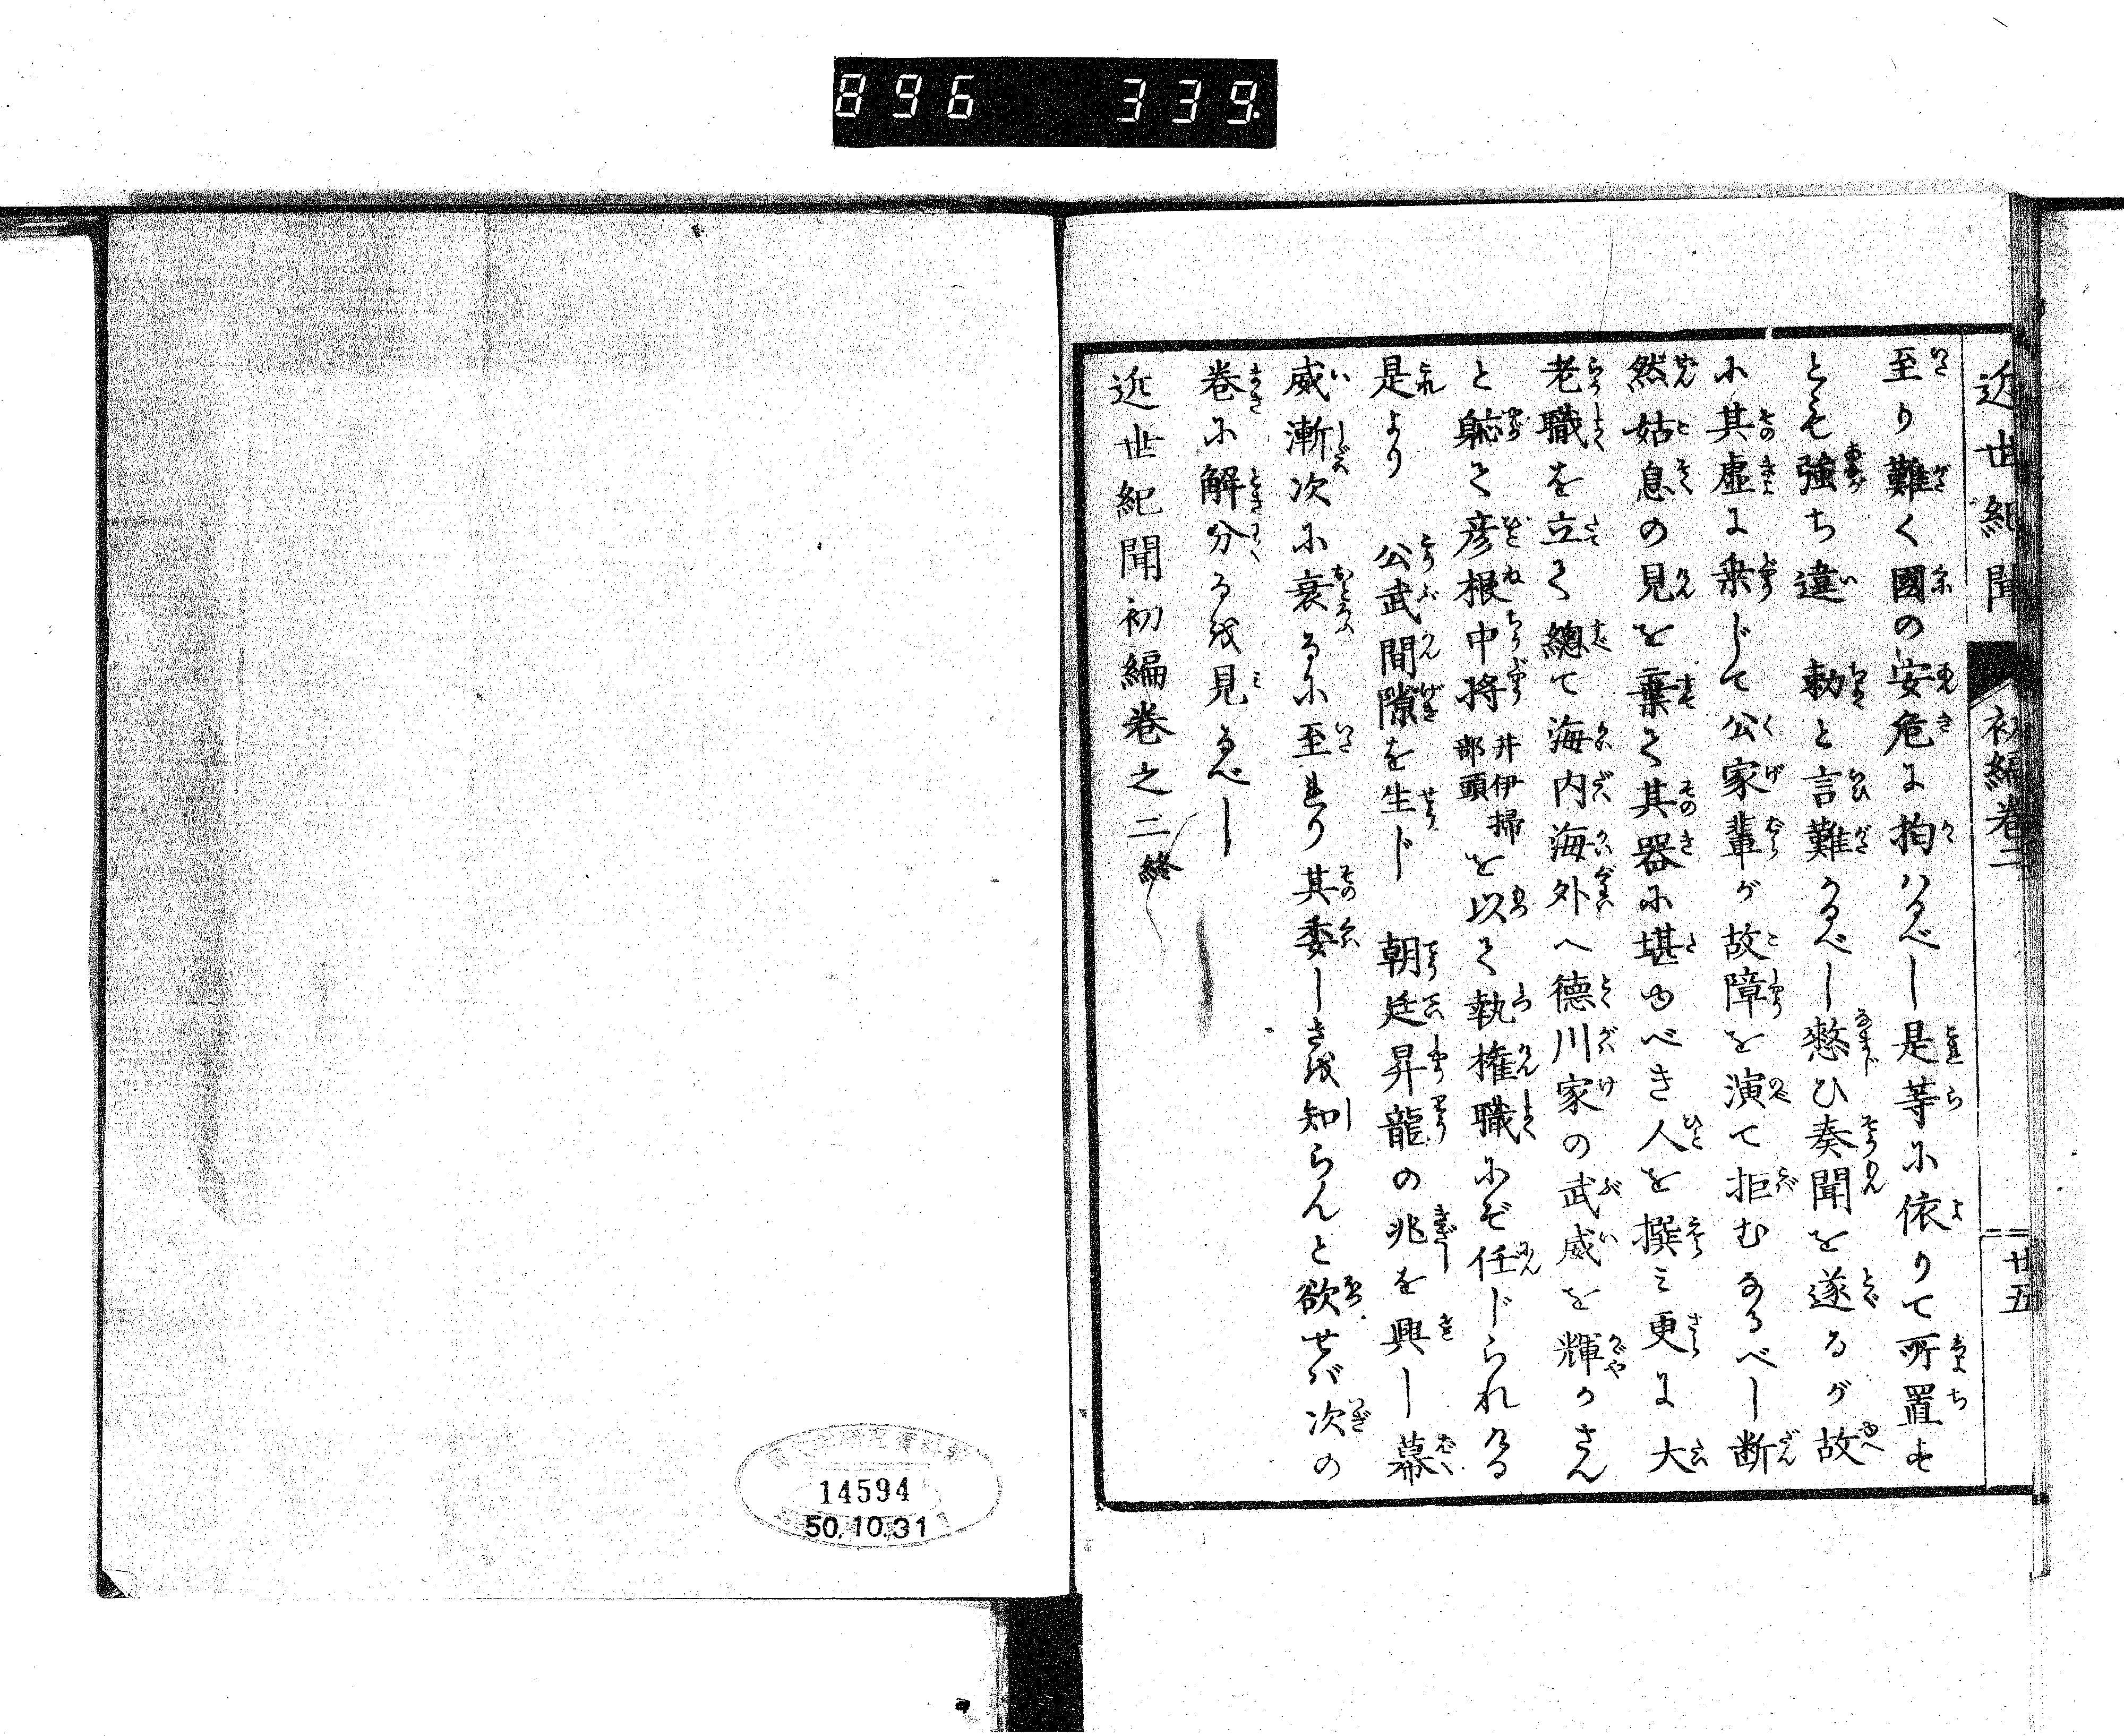 896 339.
近世紀聞 初編巻二 廿五
至り難く國の安危に拘はるべし是等に依りて所置せ
とも強ち違 勅と言難かるべし憖ひ奏聞を遂るが故
に其虚に乗じて公家輩が故障を演て拒むなるべし断
然姑息の見を棄て其器に堪ゆべき人を撰み更に大
老職を立て總て海内海外へ徳川家の武威を輝かさん
と躬て彦根中将井伊掃部頭を以て執権職にぞ任じられける
是より 公武間隙を生じ 朝廷昇龍の兆を興し幕
威漸次に衰るに至れり其委しきを知らんと欲せば次の
巻に解分るを見るべし
近世紀聞初編巻之二終
14594
50.10.31